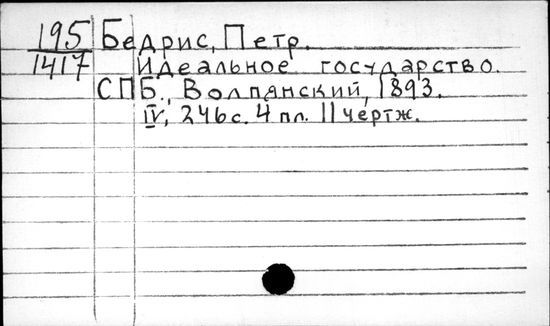 195 Бедрис, Петр.
1417 Идеальное государство.
СПБ., Волпянский, 1893.
IV, 246 с. 4 пл. 11 чертж.